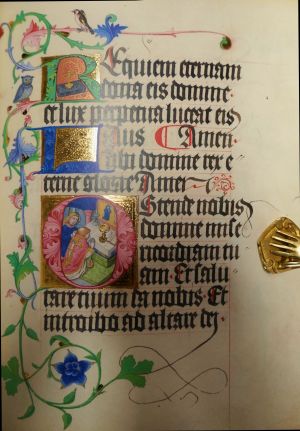 Requiem eternam
dona eis domine
et lux perpetua luceat eis
Laus Amen
tibi domine rex e
terne glorie Amen
Ostende nobis
domine mise
ricordiam tu
am. Et salu
tare tuum da nobis. Et
introibo ad altare dei